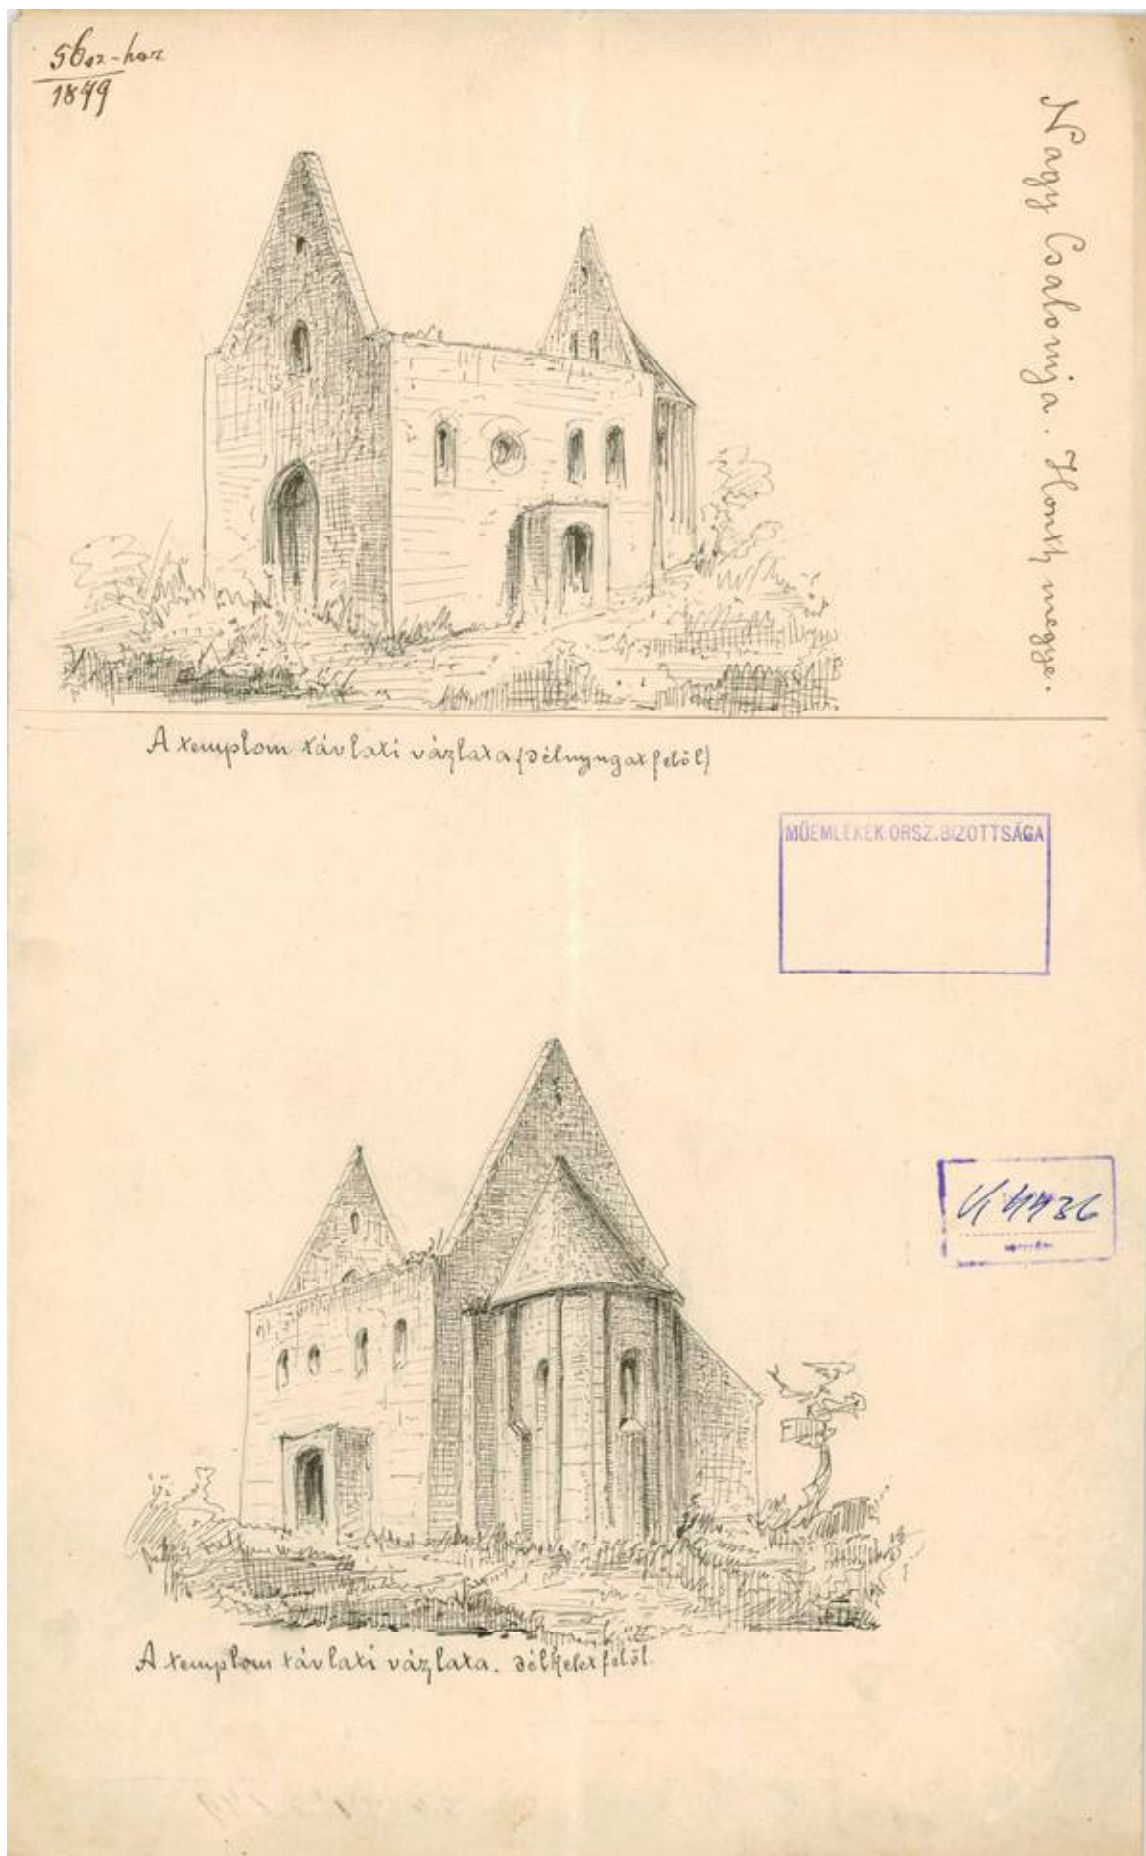 56 sz-hoz
1879
Nagy Csalomija. Honth megye.
A templom távlati vázlata (délnyugat felől)
MŰEMLÉKEK ORSZ. BIZOTTSÁGA
K 4436
A templom távlati vázlata. délkelet felől.